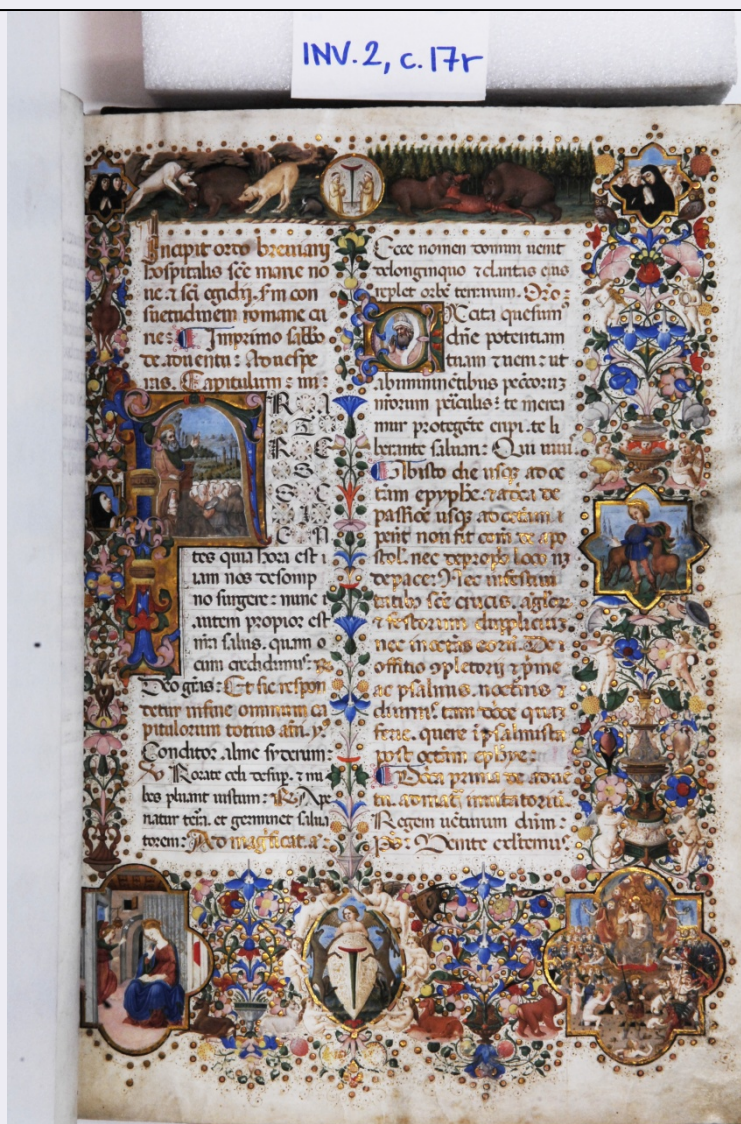 INV. 2, c. 17r
Incipit ordo breviarij
hospitalis sce marie no
ve. & sci egidij. sm con
suetudinem romane cu
rie: Imprimo sabbo
de adventu: Ad vespe
ras. Capitulum: mi:
FRA
TR
RE
S
SC
IE
N
tes quia hora est i
iam nos desomp
no surgere: nunc
autem propior est
nra salus. quam
cum credidimus:
Deo gras: Et sic respon
detur infine omnium ca
pitulorum totius
Conditor alme syderum:
Rorate celi desup. & nu
bes pluant iustum: Ape
riatur terra. et germinet salva
torem: Ad magficat. a:
Ecce nomen domini venit
delonginquo & claritas eius
replet orbe terrarum. Oro:
Excita quesumus
dne potentiam
tuam & veni: ut
ab imminentibus peccatorum
nrorum periculis: te merea
mur protegente eripi. te li
berante salvari: Qui vivis
usque ad oc
tam epyphe. & ab oca de
usque ad
non fit com de apo
stol. nec
depace: Nec infestivi
tatib sce crucis.
& festorum duplicium
nec inoctavis eorum. De
offitio &
ac psalmis. nocturnis &
diurnis. tam
ferie. quere i psalmista
post octam ephye:
prima de adve
tu. admat. invitatorium.
Regem venturum dnm:
ps: Venite exultemus